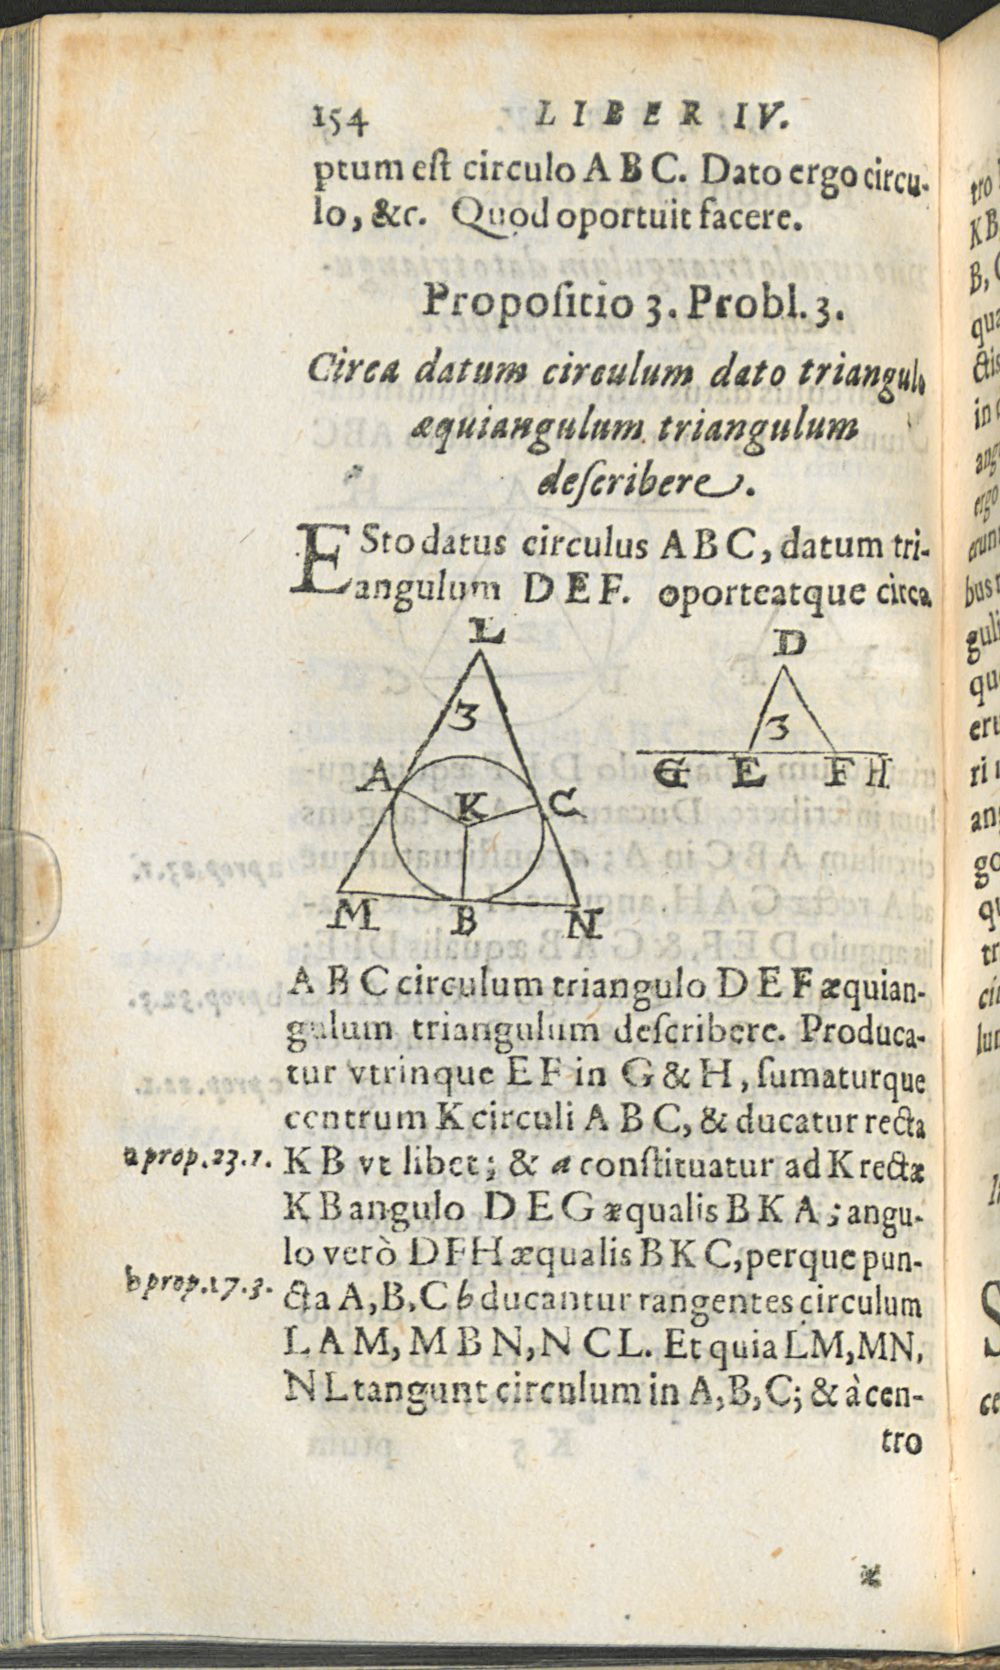 154 LIBER IV.
ptum est circulo A B C. Dato ergo circu-
lo, &c. Quod oportuit facere.
Propositio 3. Probl. 3.
Circa datum circulum dato triangulo
æquiangulum triangulum
describere.
ESto datus circulus A B C, datum tri-
angulum D E F. oporteatque circa
L
D
3
3
A
K
C
G E F H
M B N
A B C circulum triangulo D E F æquian-
gulum triangulum describere. Produca-
tur vtrinque E F in G & H, sumaturque
centrum K circuli A B C, & ducatur recta
a prop. 23. 1. K B vt libet; & a constituatur ad K rectæ
K B angulo D E G æqualis B K A; angu-
lo verò D F H æqualis B K C, perque pun-
b prop. 17. 3. cta A, B, C b ducantur tangentes circulum
L A M, M B N, N C L. Et quia LM, MN,
N L tangunt circulum in A, B, C; & à cen-
tro
tro
K B
B, C
qua
ctis
in
ang
ergo
erunt
bus
guli
que
eru
ri
ang
go
qu
tr
cir
lum
S
ce